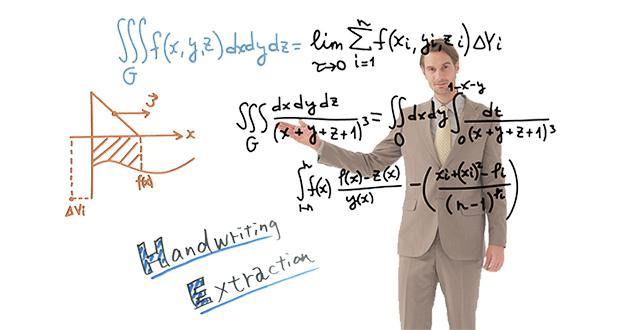 ∭_G f(x,y,z) dxdydz = lim_{τ→0} ∑_{i=1}^{n} f(xi,yi,zi)ΔVi
∭_G dxdydz/(x+y+z+1)^3 = ∬_0 dxdy ∫_0^{1-x-y} dt/(x+y+z+1)^3
f(x) (f(x)-z(x))/y(x) - ((xi+(xi)^2-Pi)/(n-1)^{Pi})
x
f(x)
ΔVi
Handwriting
Extraction